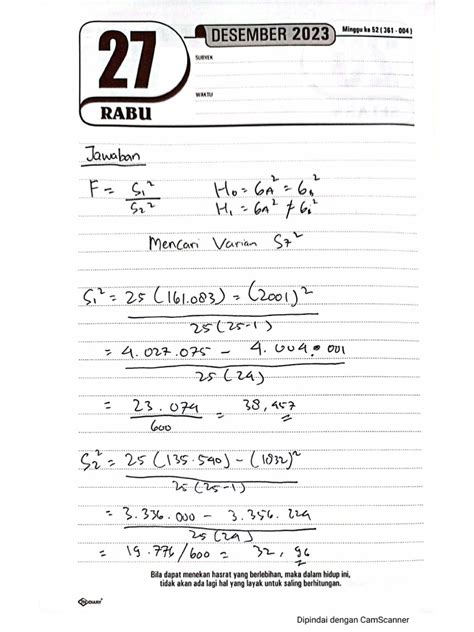 27
RABU
DESEMBER 2023
Minggu ke 52 ( 361 - 004 )
SUBYEK
WAKTU
Jawaban
F = S₁² / S₂²
H₀ = 6A² = 6b²
H₁ = 6A² ≠ 6b²
Mencari Varian S7²
S₁² = 25 (161.083) = (2001)²
25 (25-1)
= 4.027.075 - 4.004.001
25 (24)
= 23.074 = 38,457
600
S₂² = 25 (135.590) - (1832)²
25 (25-1)
= 3.336.000 - 3.356.224
25 (24)
= 19.776 / 600 = 32,96
Bila dapat menekan hasrat yang berlebihan, maka dalam hidup ini,
tidak akan ada lagi hal yang layak untuk saling berhitungan.
DIARY
Dipindai dengan CamScanner